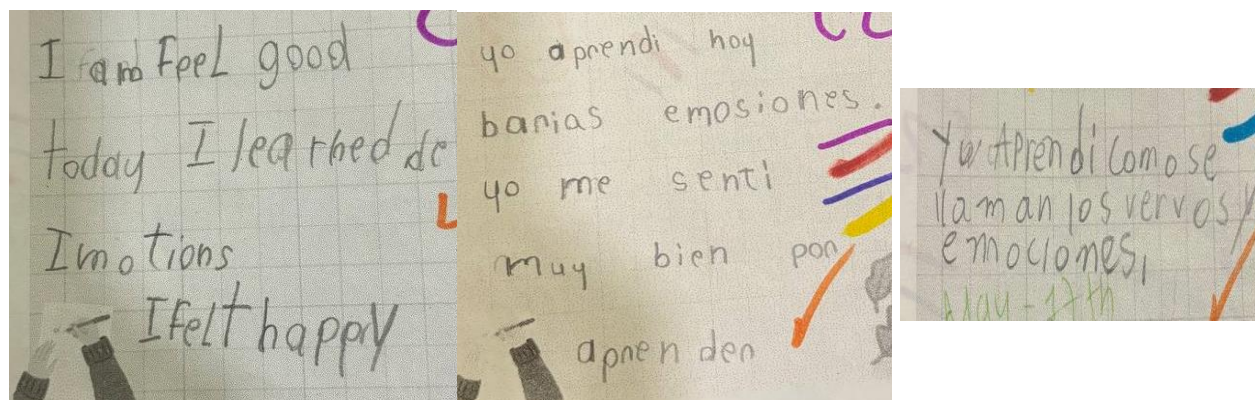 I am Feel good
today I learned de
Imotions
I felt happy
yo aprendi hoy
banias emosiones.
yo me senti
muy bien pon
apnen den
Yo Aprendi como se
llaman los vervos y
emociones,
May-17th